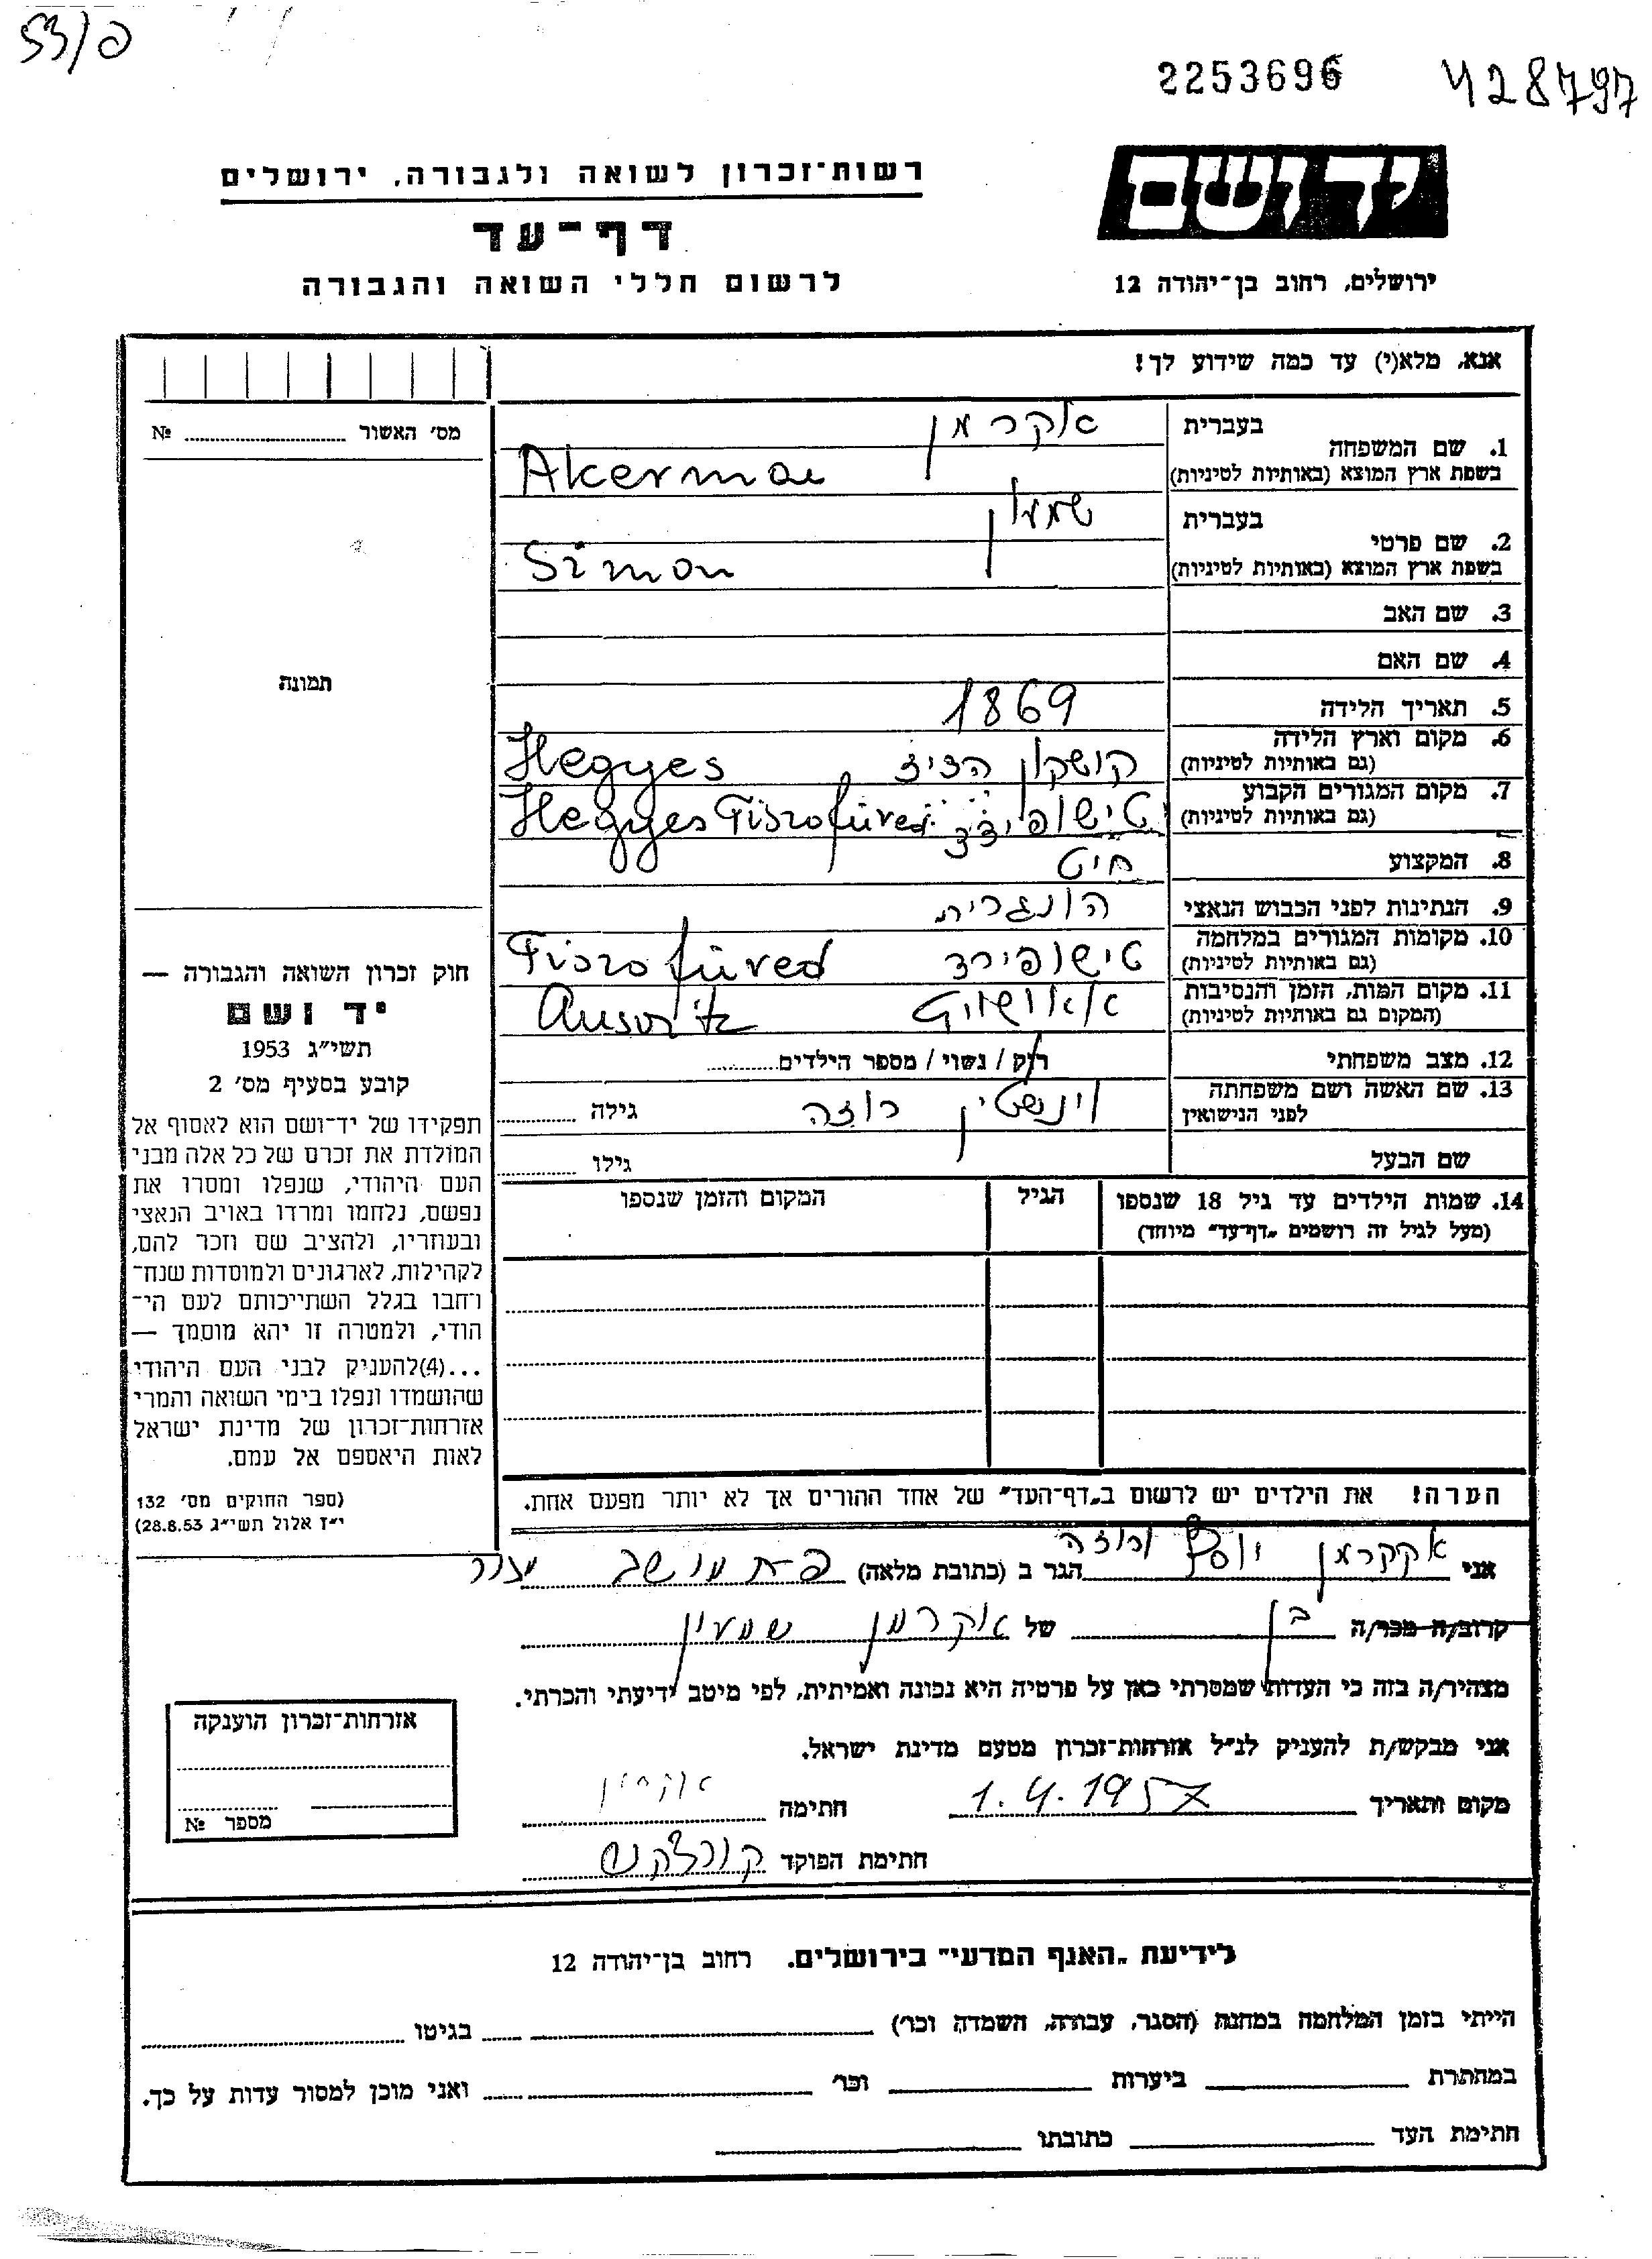 פ/53
2253696
428797
יד ושם
ירושלים, רחוב בן־יהודה 12
רשות־זכרון לשואה ולגבורה, ירושלים
דף־עד
לרשום חללי השואה והגבורה
אנא, מלא(י) עד כמה שידוע לך!
1. שם המשפחה בעברית אקרמן
בשפת ארץ המוצא (באותיות לטיניות) Akerman
2. שם פרטי בעברית שמעון
בשפת ארץ המוצא (באותיות לטיניות) Simon
3. שם האב
4. שם האם
5. תאריך הלידה 1869
6. מקום וארץ הלידה
(גם באותיות לטיניות) Hegyes
7. מקום המגורים הקבוע
(גם באותיות לטיניות) Hegyes Tiszofüred
8. המקצוע חייט
9. הנתינות לפני הכבוש הנאצי הונגרית
10. מקומות המגורים במלחמה
(גם באותיות לטיניות) טישופירד Tiszofüred
11. מקום המות, הזמן והנסיבות
(המקום גם באותיות לטיניות) אאושויץ Ausvitz
12. מצב משפחתי רוק / נשוי / מספר הילדים
13. שם האשה ושם משפחתה
לפני הנישואין וינשטין רוזה גילה
שם הבעל גילו
14. שמות הילדים עד גיל 18 שנספו הגיל המקום והזמן שנספו
(מעל לגיל זה רושמים „דף־עד" מיוחד)
הערה! את הילדים יש לרשום ב„דף־העד" של אחד ההורים אך לא יותר מפעם אחת.
מס' האשור №
תמונה
חוק זכרון השואה והגבורה —
יד ושם
תשי"ג 1953
קובע בסעיף מס' 2
תפקידו של יד־ושם הוא לאסוף אל
המולדת את זכרם של כל אלה מבני
העם היהודי, שנפלו ומסרו את
נפשם, נלחמו ומרדו באויב הנאצי
ובעוזריו, ולהציב שם וזכר להם,
לקהילות, לארגונים ולמוסדות שנח־
רחבו בגלל השתייכותם לעם הי־
הודי, ולמטרה זו יהא מוסמך —
...(4)להעניק לבני העם היהודי
שהושמדו ונפלו בימי השואה והמרי
אזרחות־זכרון של מדינת ישראל
לאות היאספם אל עמם.
(ספר החוקים מס' 132
י"ז אלול תשי"ג 28.8.53)
אני אקרמן יוסף ורוזה הגר ב (כתובת מלאה) פ"ת מושב מזור
קרוב/ה מכר/ה בן של אקרמן שמעון
מצהיר/ה בזה כי העדות שמסרתי כאן על פרטיה היא נכונה ואמיתית, לפי מיטב ידיעתי והכרתי.
אני מבקש/ת להעניק לנ"ל אזרחות־זכרון מטעם מדינת ישראל.
מקום ותאריך 1.4.1957 חתימה אקרמן
חתימת הפוקד
אזרחות־זכרון הוענקה
מספר №
לידיעת „האגף המדעי" בירושלים. רחוב בן־יהודה 12
הייתי בזמן המלחמה במחנה (הסגר, עבודה, השמדה וכו') בגיטו
במחתרת ביערות וכו' ואני מוכן למסור עדות על כך.
חתימת העד כתובתו